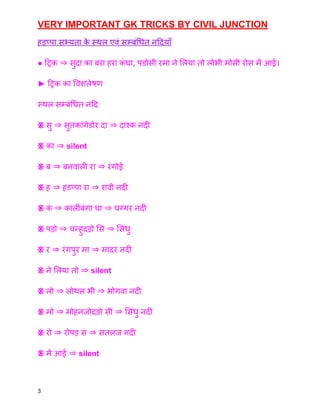 VERY IMPORTANT GK TRICKS BY CIVIL JUNCTION
हडप्पा सभ्यता के स्थल एवं सम्बंधित नदियाँ
● ट्रिक ⇒ सुदा का बरा हरा कंघा, पडोसी रमा ने लिया तो लोभी मोसी रोस में आई।
► ट्रिक का विशलेषण
स्थल सम्बंधित नदि
※ सु ⇒ सुतकांगेडोर दा ⇒ दाश्क नदी
※ का ⇒ silent
※ ब ⇒ बनवाली रा ⇒ रंगोई
※ ह ⇒ हडप्पा रा ⇒ रावी नदी
※ कं ⇒ कालीबंगा घा ⇒ घग्गर नदी
※ पडो ⇒ चन्हुदडो सि ⇒ सिंधु
※ र ⇒ रंगपुर मा ⇒ मादर नदी
※ ने लिया तो ⇒ silent
※ लो ⇒ लोथल भी ⇒ भोगवा नदी
※ मो ⇒ मोहनजोदडो सी ⇒ सिंधु नदी
※ रो ⇒ रोपड़ स ⇒ सतलज नदी
※ में आई ⇒ silent
3